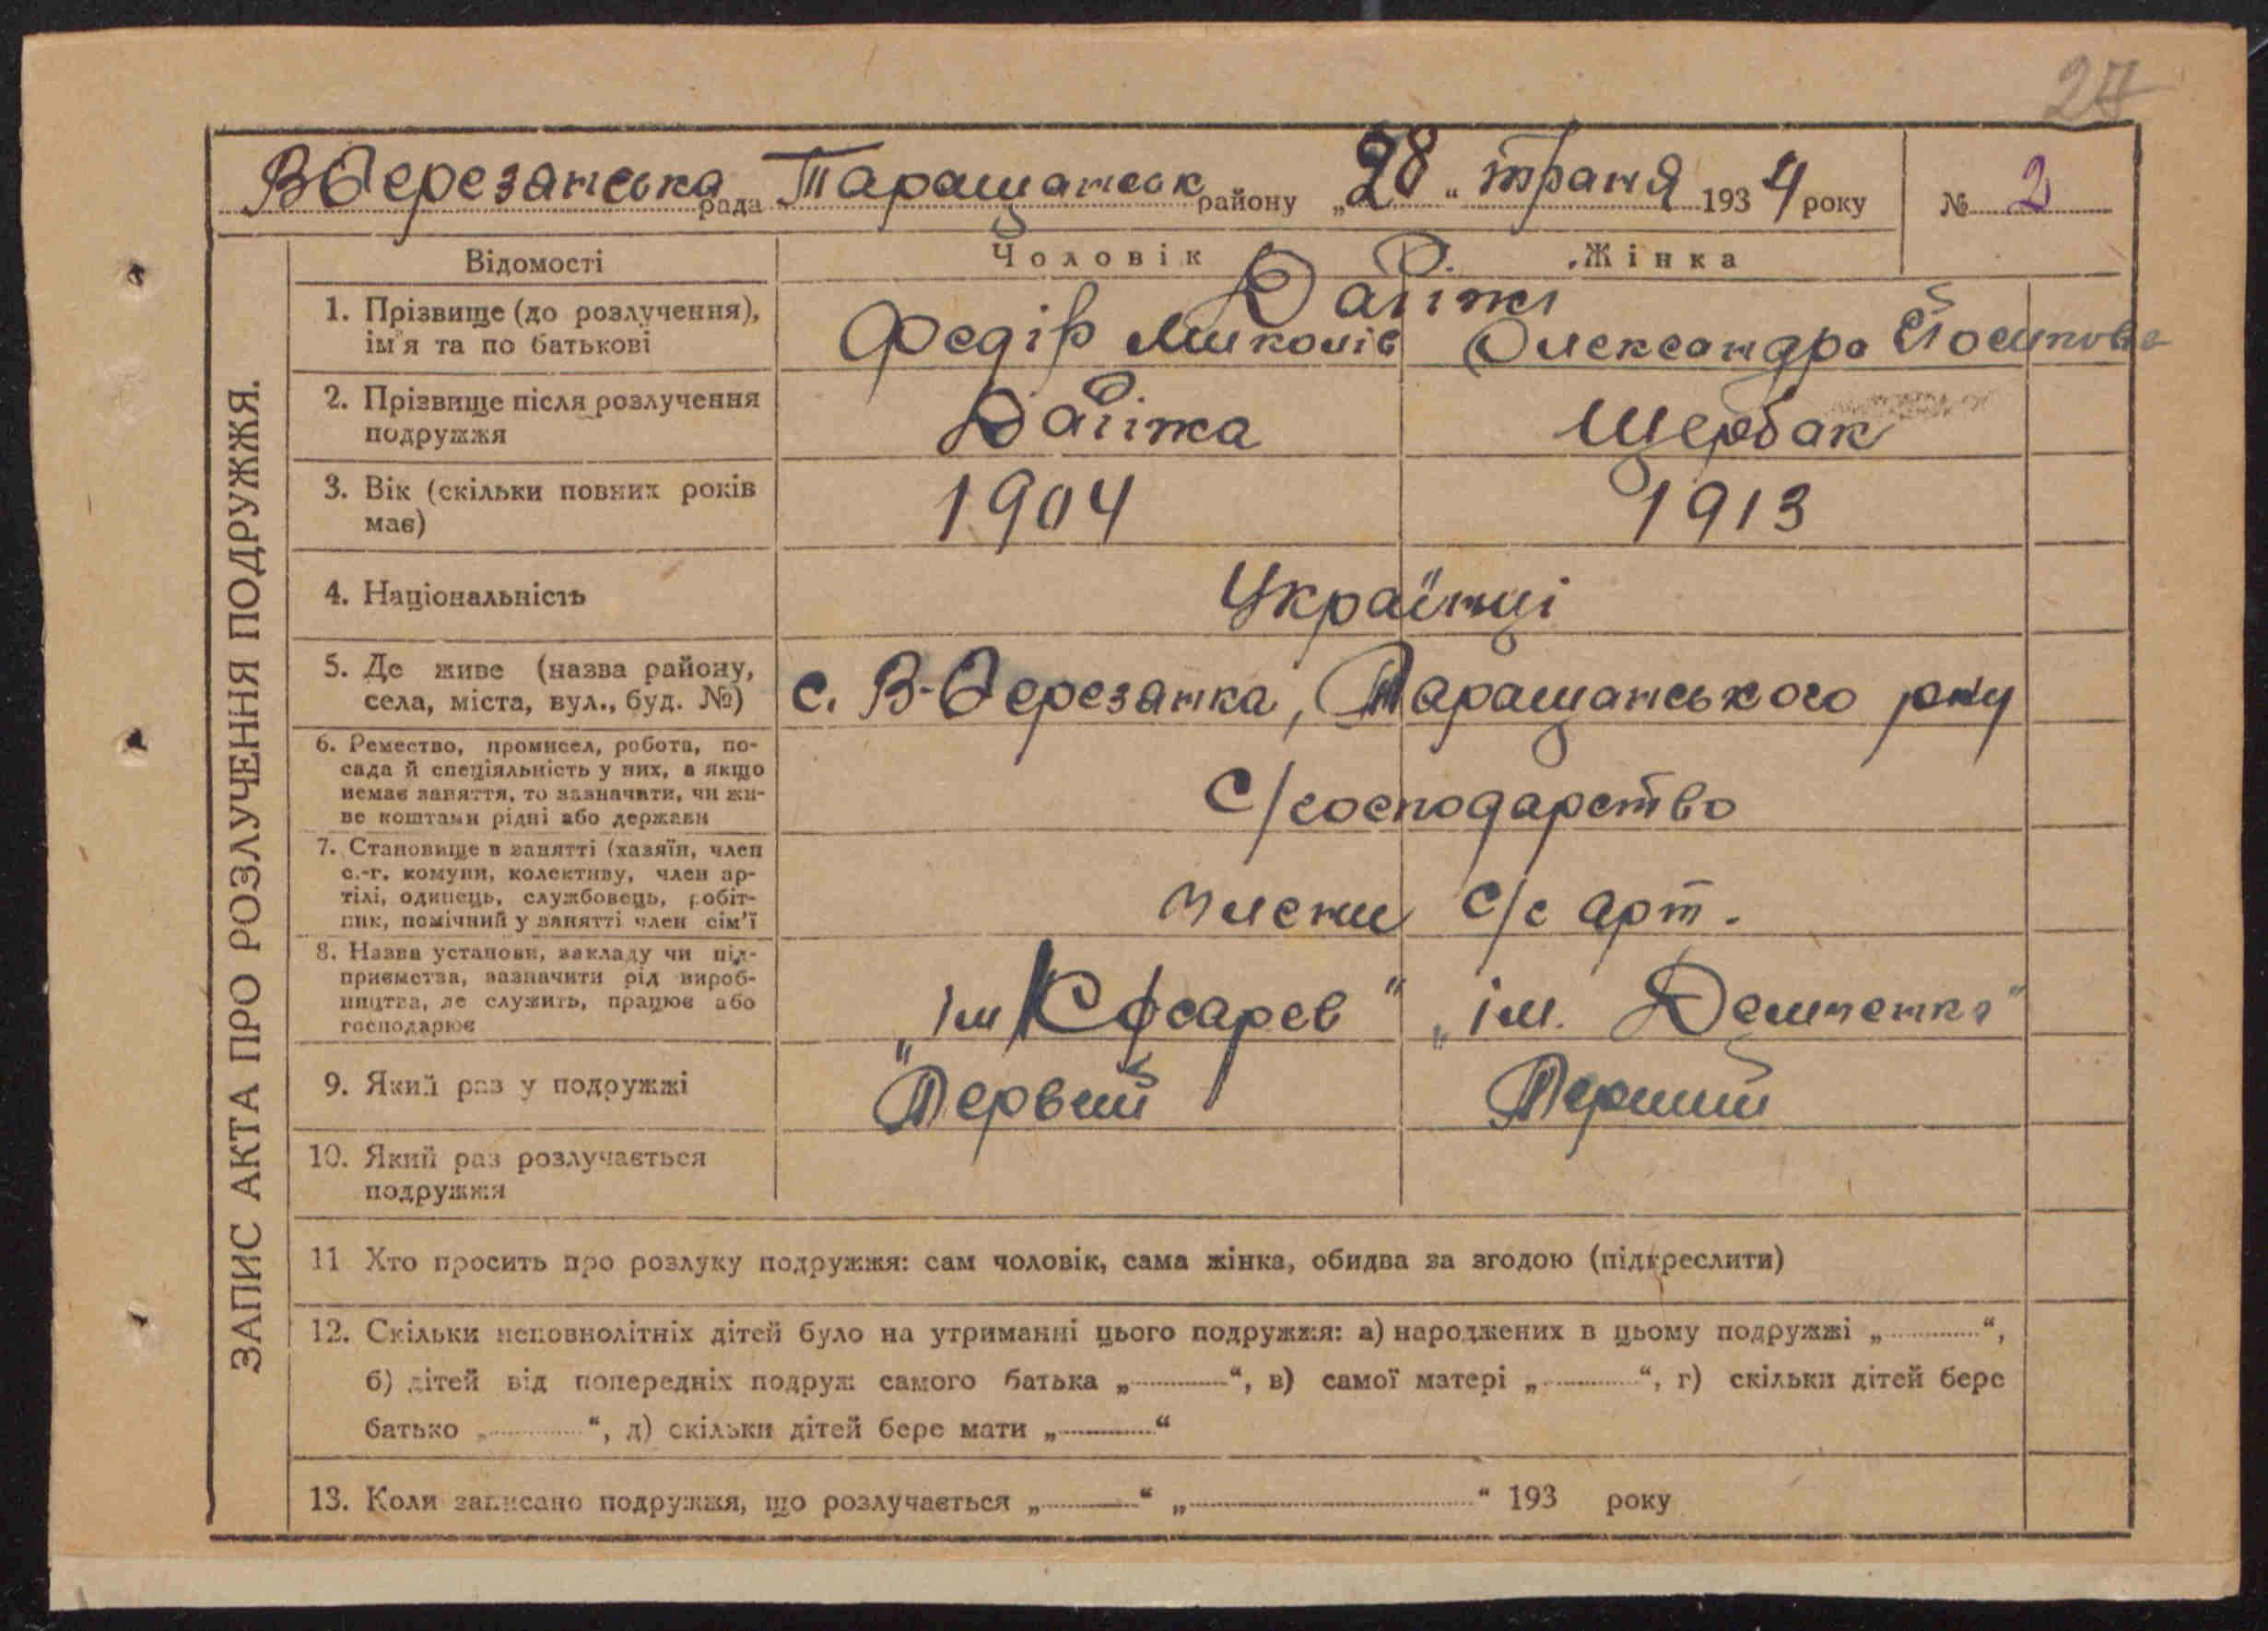 27
В Березанська рада Таращанськ району „28“ траня 1934 року № 2
Відомості Чоловік Жінка
1. Прізвище (до розлучення), ім'я та по батькові
Федір Миколів Олександра Йосипова
2. Прізвище після розлучення подружжя
Щербак
3. Вік (скільки повних років має)
1904 1913
4. Національність
Українці
5. Де живе (назва району, села, міста, вул., буд. №)
с. В-Березанка, Таращанського р-ну
6. Ремество, промисел, робота, по-
сада й спеціяльність у них, а якщо
немає заняття, то зазначити, чи жи-
ве коштами рідні або держави
С/господарство
7. Становище в занятті (хазяїн, член
с.-г. комуни, колективу, член ар-
тілі, одинець, службовець, робіт-
ник, помічний у занятті член сім'ї
члени с/г арт.
8. Назва установи, закладу чи під-
приємства, зазначити рід вироб-
ництва, де служить, працює або
господарює
„ім “ „ім. Демченка“
9. Який раз у подружжі
Первий Перший
10. Який раз розлучається
подружжя
11 Хто просить про розлуку подружжя: сам чоловік, сама жінка, обидва за згодою (підкреслити)
12. Скільки неповнолітніх дітей було на утриманні цього подружжя: а) народжених в цьому подружжі „ “,
б) дітей від попередніх подруж самого батька „ “, в) самої матері „ “, г) скільки дітей бере
батько „ “, д) скільки дітей бере мати „ “
13. Коли записано подружжя, що розлучається „ “ „ “ 193 року
ЗАПИС АКТА ПРО РОЗЛУЧЕННЯ ПОДРУЖЖЯ.